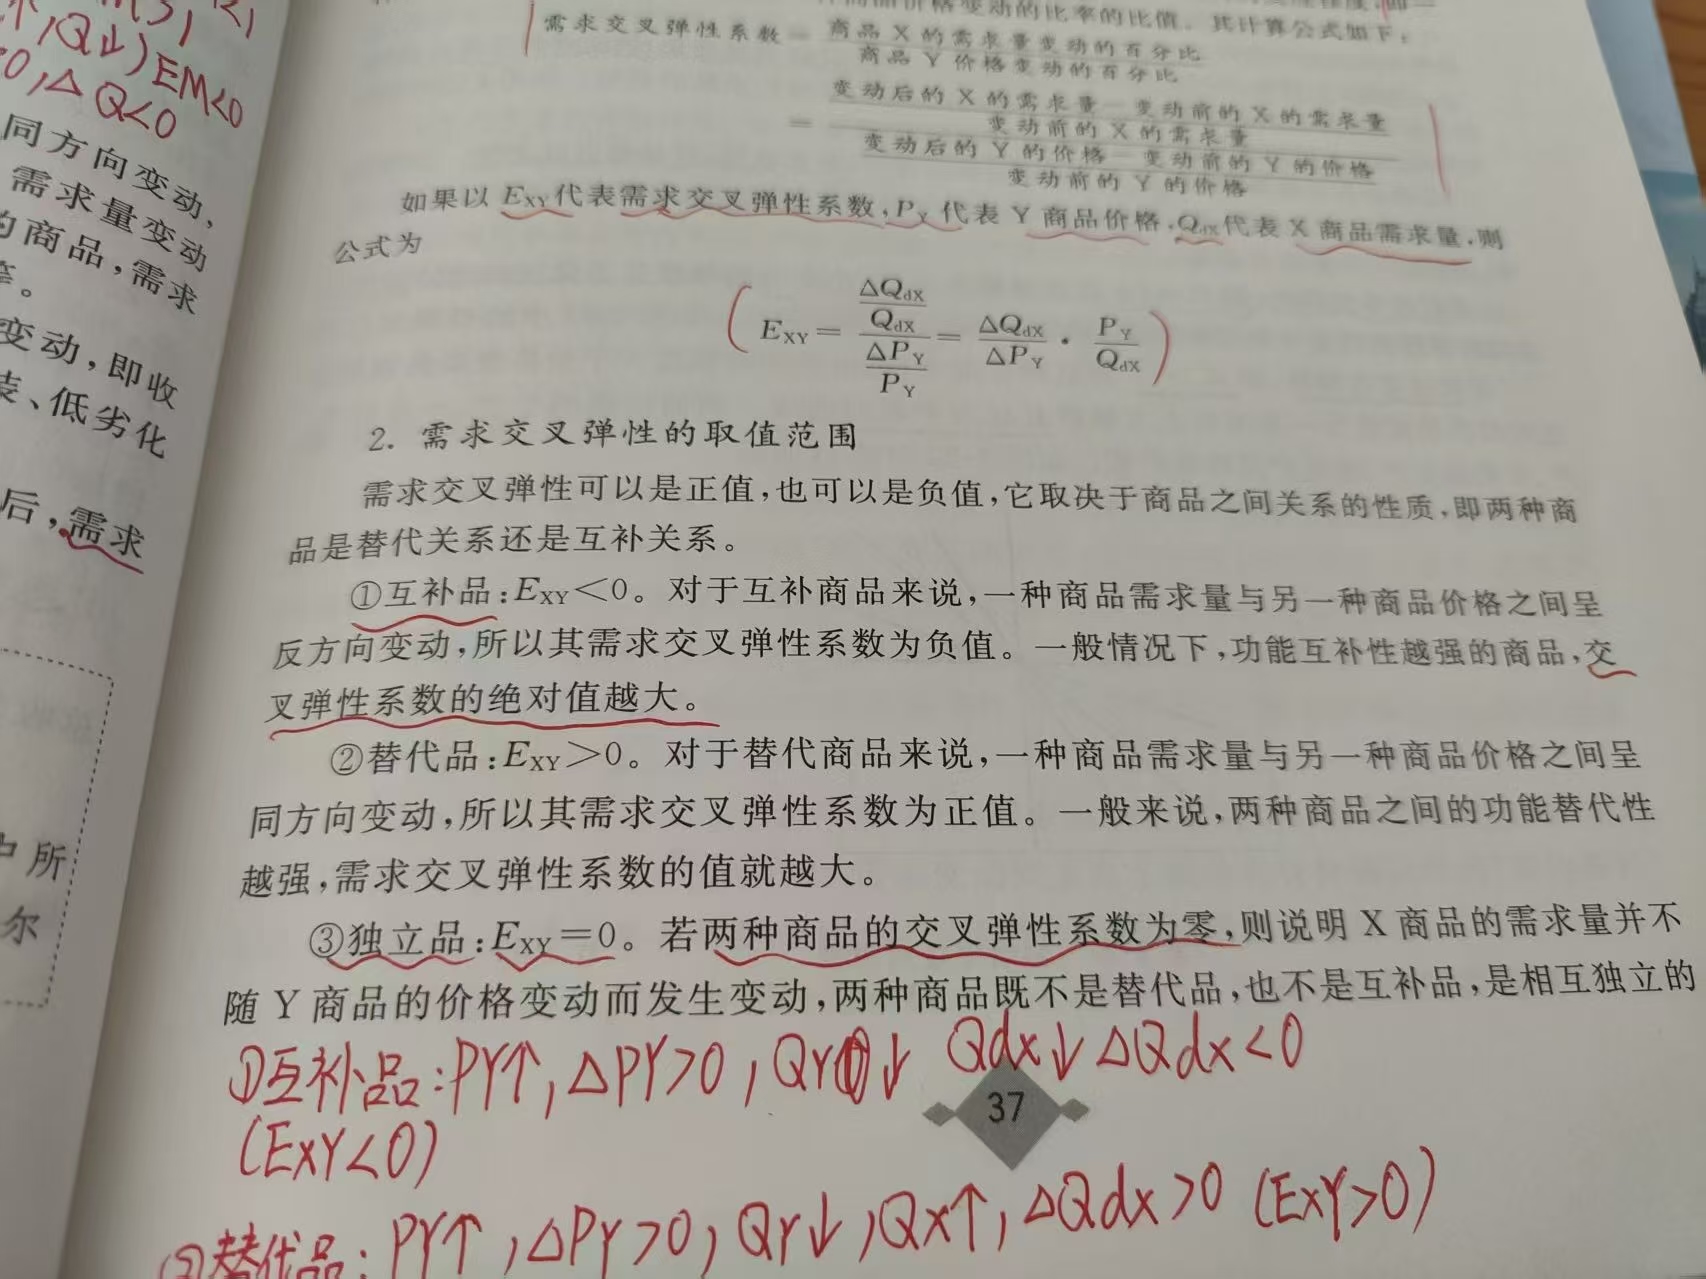 ,Q↓) EM<0
0,△Q<0
同方向变动,
需求量变动
的商品,需求
等。
变动,即收
装、低劣化
后,需求
中所
尔
商品价格变动的比率的比值。其计算公式如下:
需求交叉弹性系数=商品X的需求量变动的百分比
商品Y价格变动的百分比
=变动后的X的需求量—变动前的X的需求量
变动前的X的需求量
变动后的Y的价格—变动前的Y的价格
变动前的Y的价格
如果以EXY代表需求交叉弹性系数,PY代表Y商品价格,QdX代表X商品需求量,则
公式为
EXY=ΔQdX/QdX / ΔPY/PY=ΔQdX/ΔPY·PY/QdX
2. 需求交叉弹性的取值范围
需求交叉弹性可以是正值,也可以是负值,它取决于商品之间关系的性质,即两种商
品是替代关系还是互补关系。
①互补品:EXY<0。对于互补商品来说,一种商品需求量与另一种商品价格之间呈
反方向变动,所以其需求交叉弹性系数为负值。一般情况下,功能互补性越强的商品,交
叉弹性系数的绝对值越大。
②替代品:EXY>0。对于替代商品来说,一种商品需求量与另一种商品价格之间呈
同方向变动,所以其需求交叉弹性系数为正值。一般来说,两种商品之间的功能替代性
越强,需求交叉弹性系数的值就越大。
③独立品:EXY=0。若两种商品的交叉弹性系数为零,则说明X商品的需求量并不
随Y商品的价格变动而发生变动,两种商品既不是替代品,也不是互补品,是相互独立的
①互补品:PY↑,△PY>0,QY↓ Qdx↓△Qdx<0
(EXY<0)
37
②替代品:PY↑,△PY>0,QY↓,Qx↑,△Qdx>0 (EXY>0)